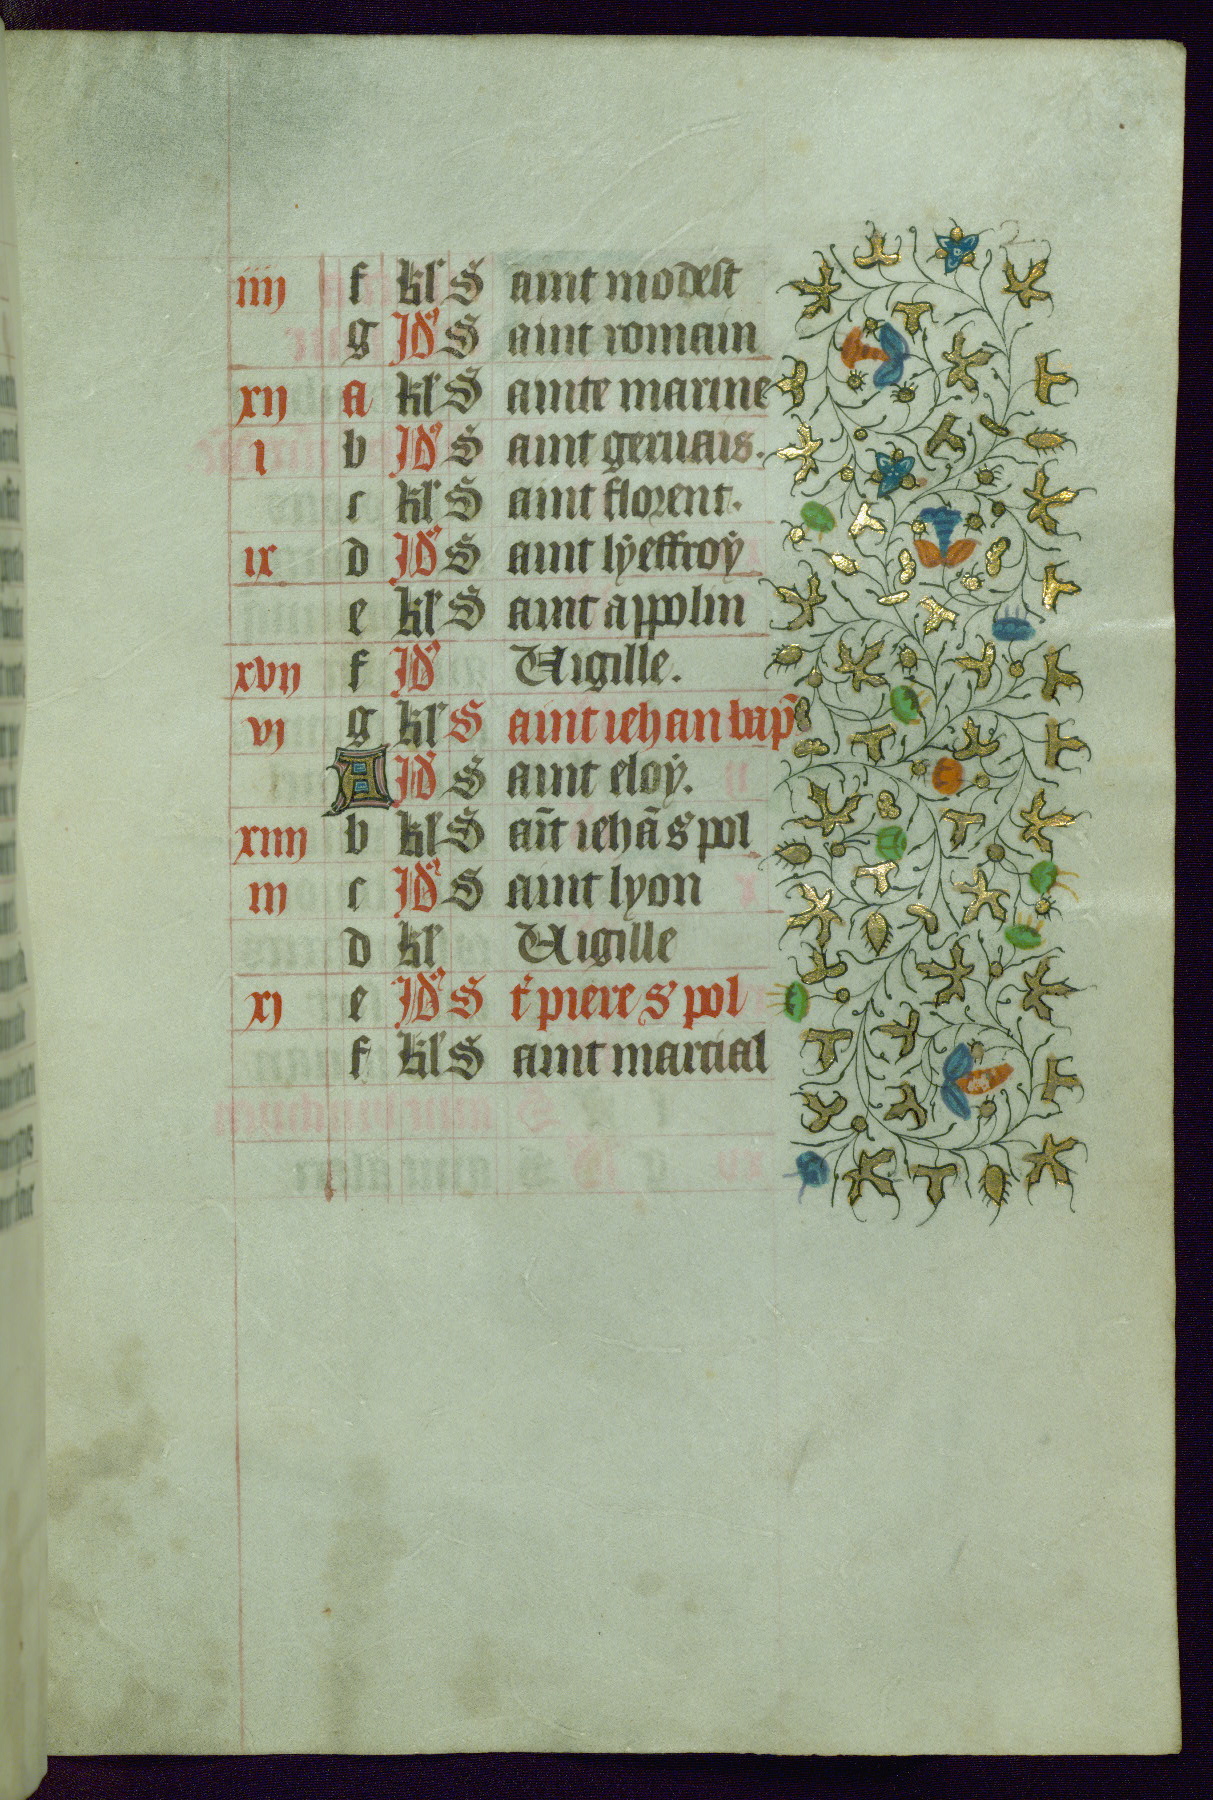 iiij f kl' S aint modest
g Id' S aint romain
xij a kl' S ainte marine
i b Id' S aint geruais.
c kl' S aint florent.
ix d Id' S aint lyeffroy
e kl' S aint appolin
xvij f Id' Uigille.
vj g kl' S aint iehan bap~
A Id' S aint eloy.
xiiij b kl' S aīt iehā s' pol
iij c Id' S aint lyon
d kl' Uigille
xj e Id' S t' piere s' pol
f kl' S aint martial